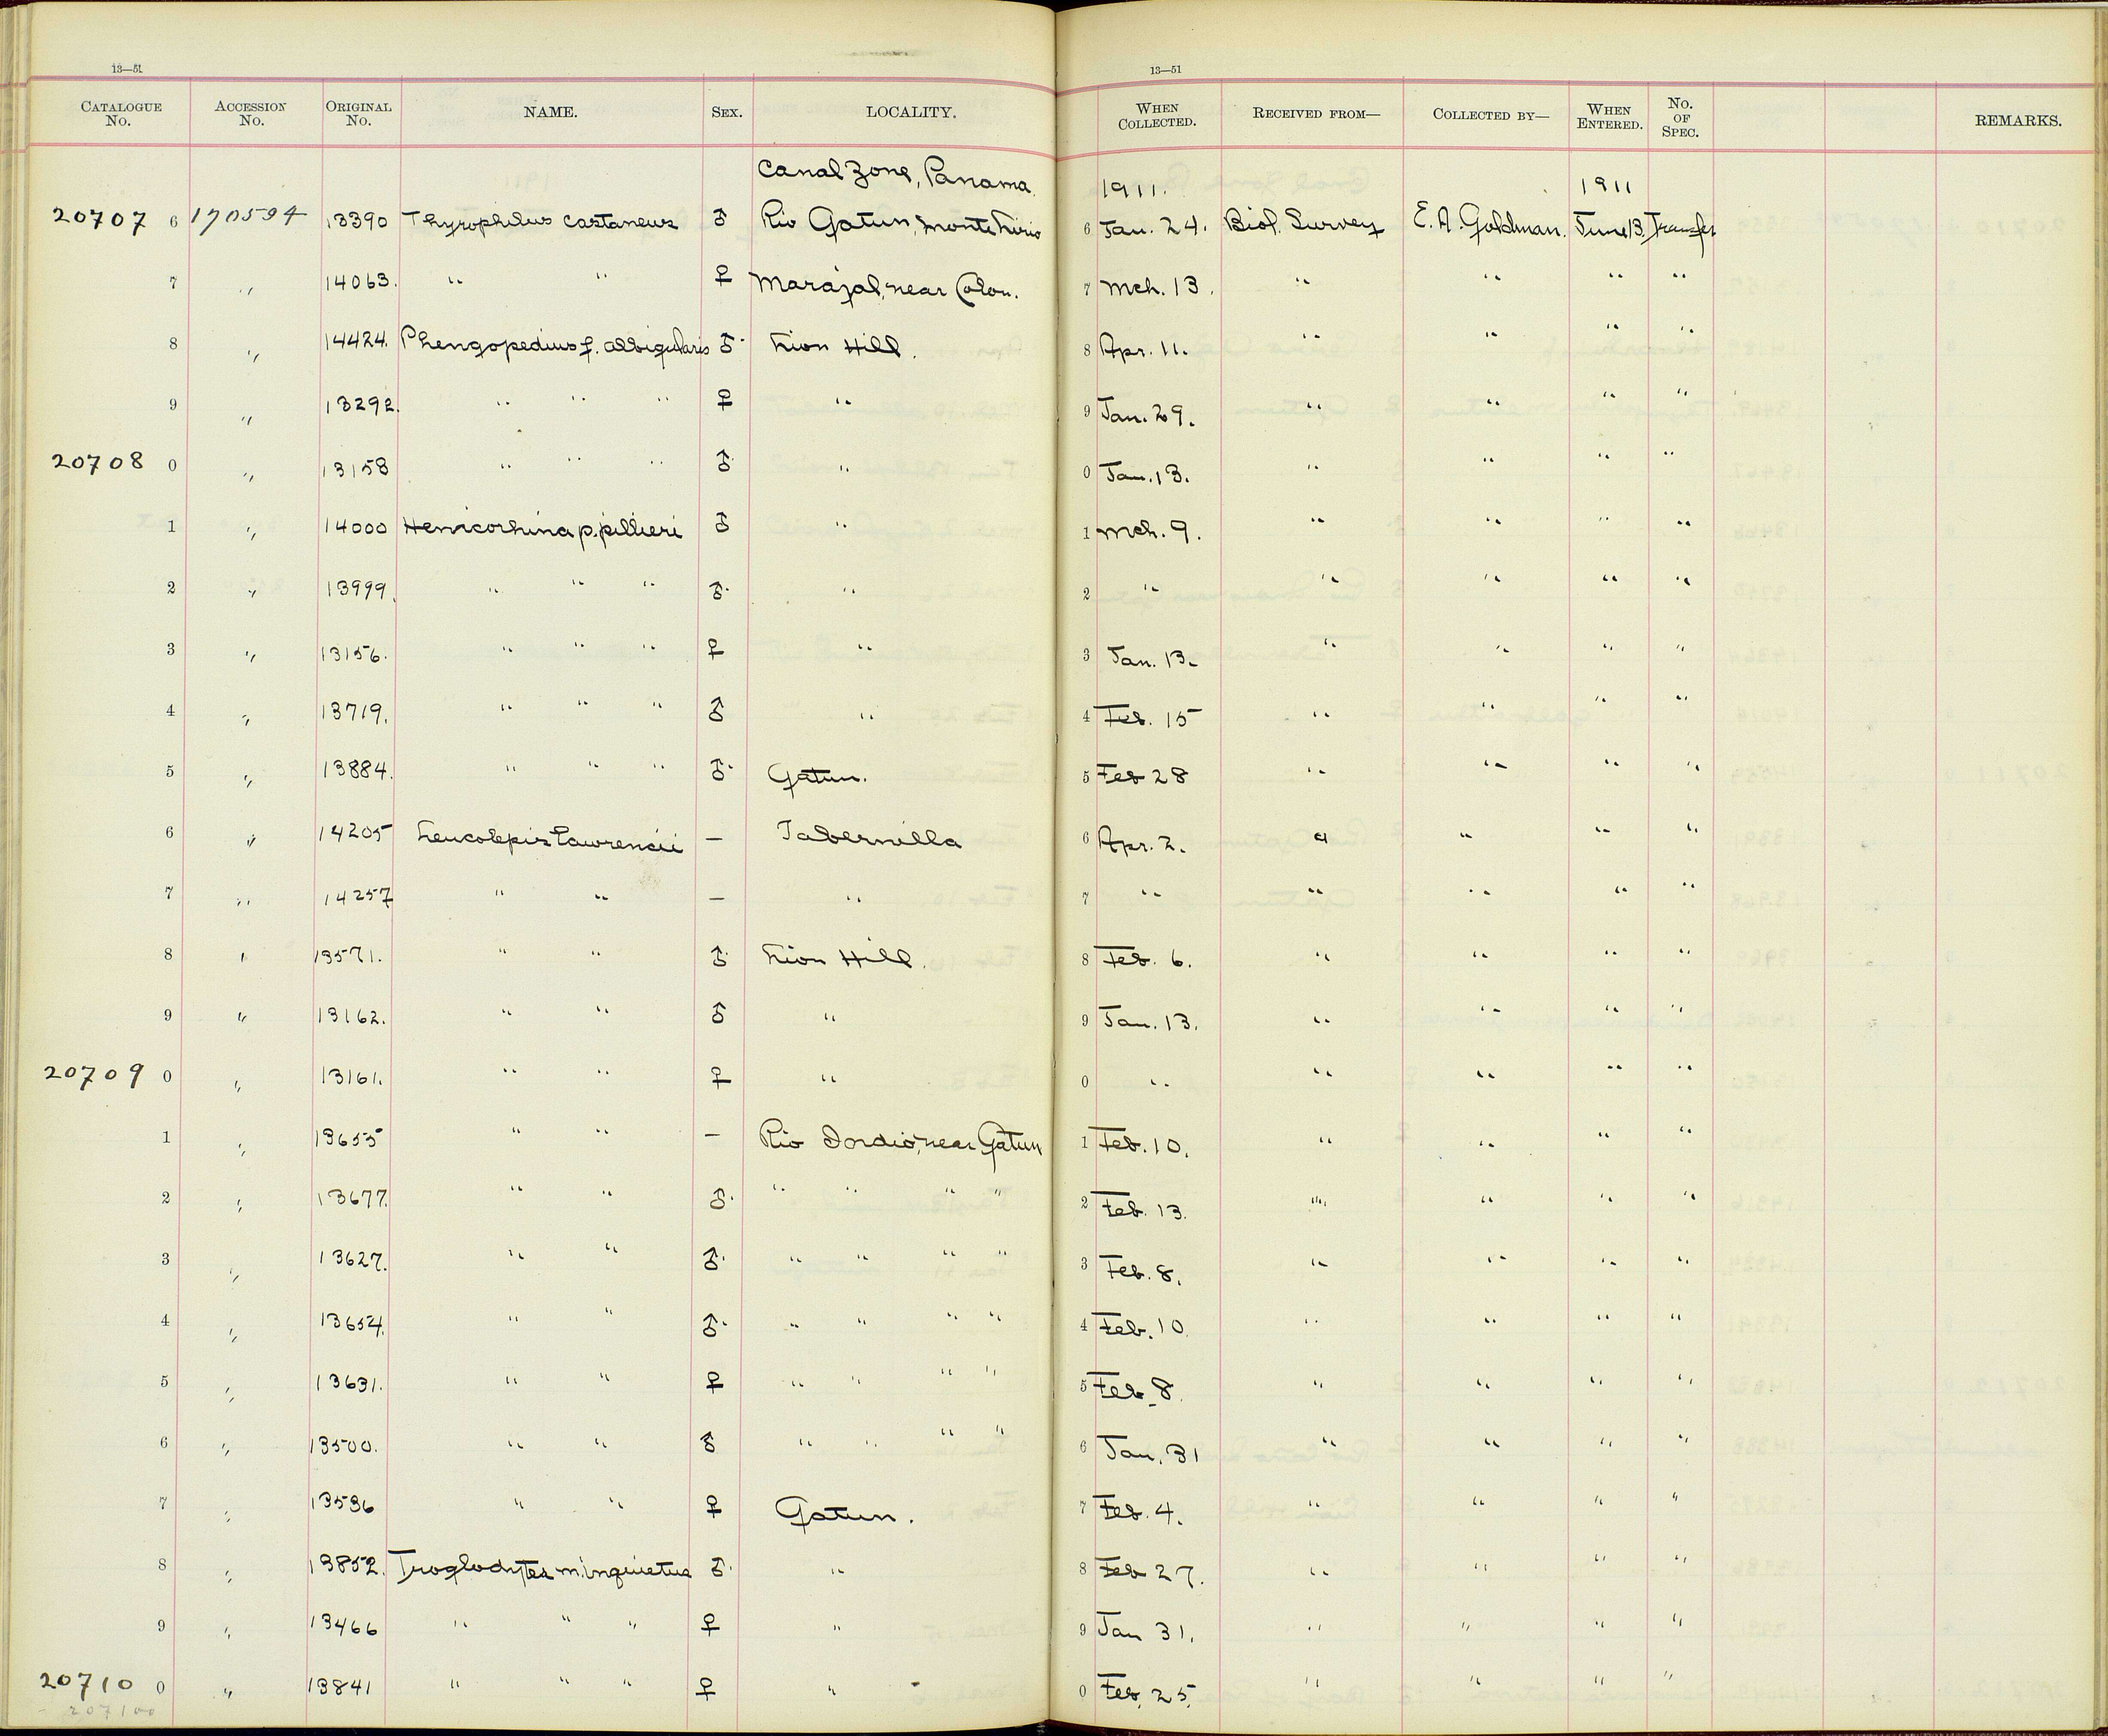 13—51
13—51
CATALOGUE No. ACCESSION No. ORIGINAL No. NAME. SEX. LOCALITY. WHEN COLLECTED. RECEIVED FROM— COLLECTED BY— WHEN ENTERED. No. OF SPEC. REMARKS.
Canal Zone, Panama. 1911. 1911
20707 6 170594 13390 Thryophilus castaneus ♂ Rio Gatun, Monte Lirio 6 Jan. 24. Biol. Survey E. A. Goldman. June 13. Transfer
7 " 14063. " " ♀ Marajal, near Colon. 7 Mch. 13. " " " "
8 " 14424. Phengopedius f. albigularis ♂ Lion Hill. 8 Apr. 11. " " " "
9 " 13292. " " " ♀ " 9 Jan. 29. " " " "
20708 0 " 13158 " " " ♂ " 0 Jan. 13. " " " "
1 " 14000 Henicorhina p. pittieri ♂ " 1 Mch. 9. " " " "
2 " 13999. " " " ♂ " 2 " " " " "
3 " 13156. " " " ♀ " 3 Jan. 13. " " " "
4 " 13719. " " " ♂ " 4 Feb. 15 " " " "
5 " 13884. " " " ♂ Gatun. 5 Feb 28 " " " "
6 " 14205 Leucolepis lawrencii — Tabernilla 6 Apr. 2. " " " "
7 " 14257 " " — " 7 " " " " "
8 " 13571. " " ♂ Lion Hill. 8 Feb. 6. " " " "
9 " 13162. " " ♂ " 9 Jan. 13. " " " "
20709 0 " 13161. " " ♀ " 0 " " " " "
1 " 13655 " " — Rio Indio, near Gatun 1 Feb. 10. " " " "
2 " 13677. " " ♂ " " " " 2 Feb. 13. " " " "
3 " 13627. " " ♂ " " " " 3 Feb. 8. " " " "
4 " 13654. " " ♂ " " " " 4 Feb. 10. " " " "
5 " 13631. " " ♀ " " " " 5 Feb. 8. " " " "
6 " 13500. " " ♂ " " " " 6 Jan. 31 " " " "
7 " 13536 " " ♀ Gatun. 7 Feb. 4. " " " "
8 " 13852. Troglodytes m. inquietus ♂ " 8 Feb 27. " " " "
9 " 13466 " " " ♀ " 9 Jan 31. " " " "
20710 0 " 13841 " " " ♀ " 0 Feb. 25. " " " "
207100